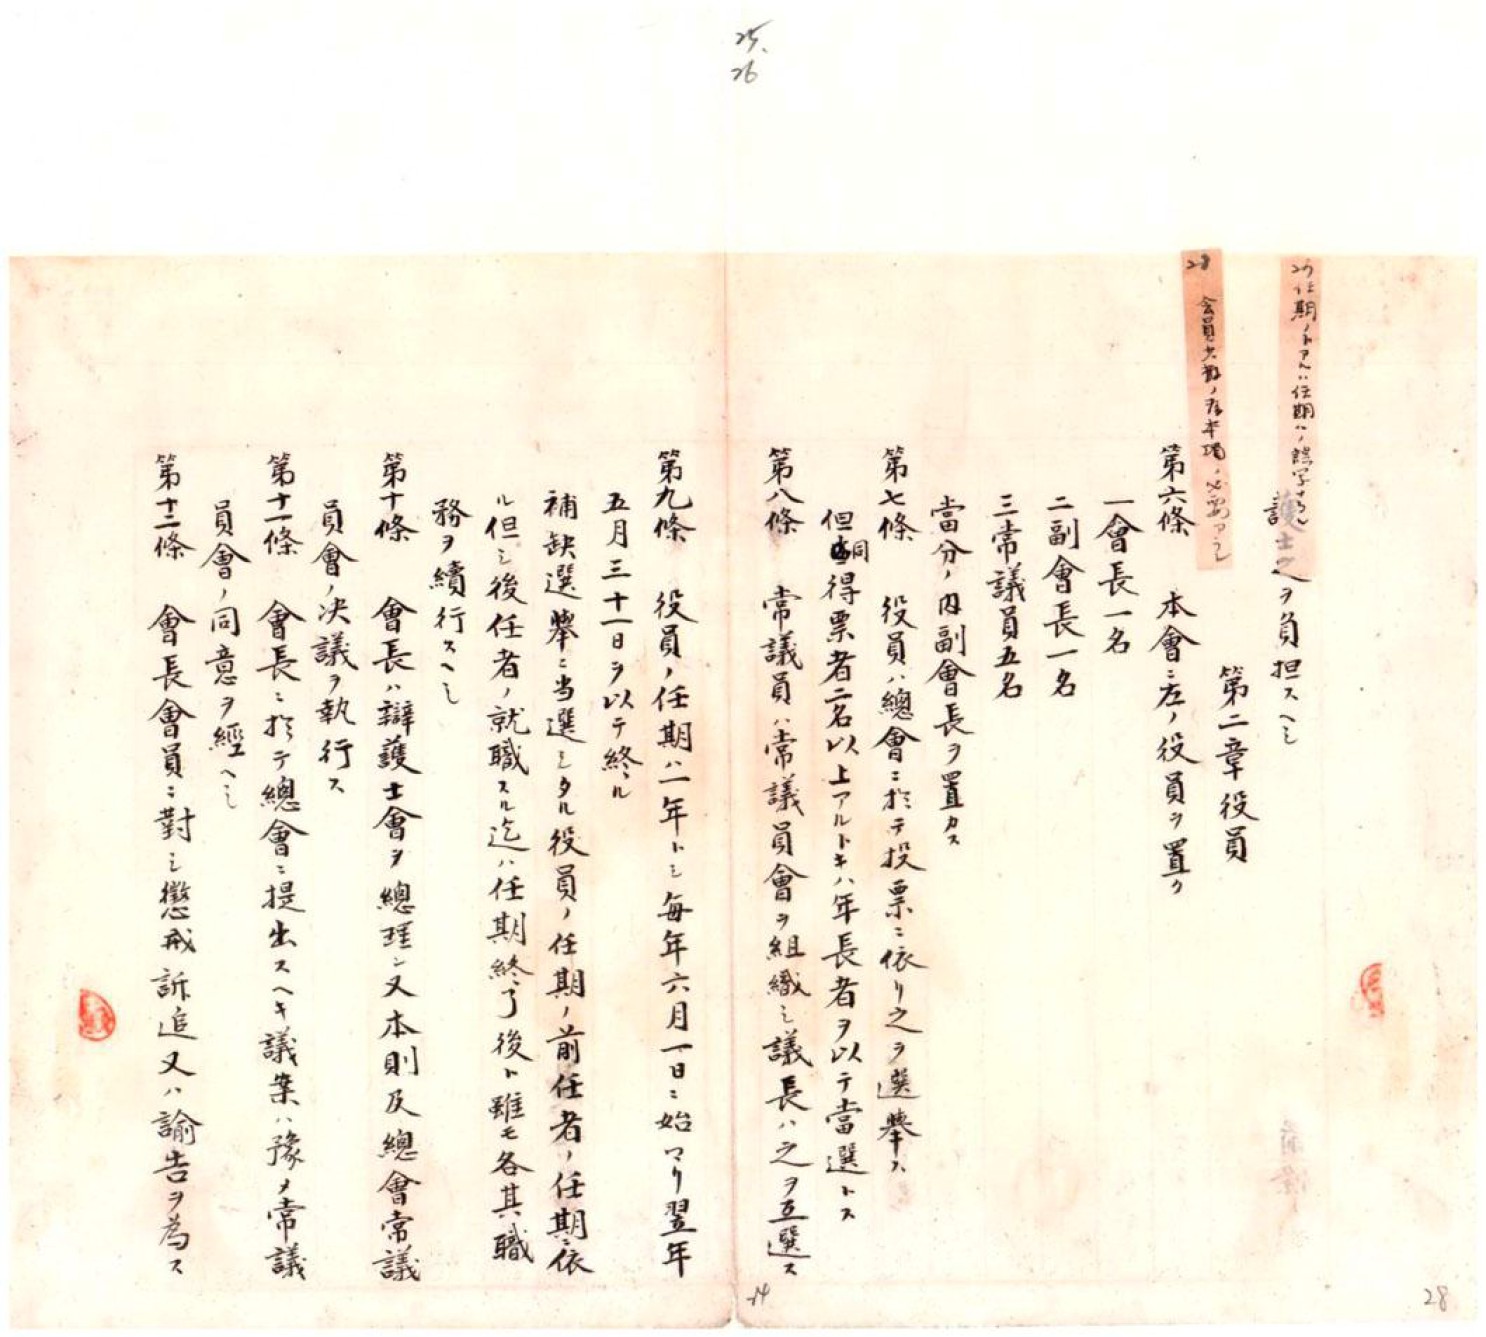 25.
26
27 任期ノトアルハ任期ハノ誤字ナラン
28 会員少数ノ為本項ノ必要ナシ
護士之ヲ負担スヘシ
第二章役員
第六條 本會ニ左ノ役員ヲ置ク
一會長一名
二副會長一名
三常議員五名
當分ノ內副會長ヲ置カス
第七條 役員ハ總會ニ於テ投票ニ依リ之ヲ選擧ス
但同得票者二名以上アルトキハ年長者ヲ以テ當選トス
第八條 常議員ハ常議員會ヲ組織シ議長ハ之ヲ互選ス
第九條 役員ノ任期ハ一年トシ每年六月一日ニ始マリ翌年
五月三十一日ヲ以テ終ル
補缺選擧ニ当選シタル役員ノ任期ノ前任者ノ任期ニ依
ル但シ後任者ノ就職スル迄ハ任期終了後ト雖モ各其職
務ヲ續行スヘシ
第十條 會長ハ辯護士會ヲ總理シ又本則及總會常議
員會ノ決議ヲ執行ス
第十一條 會長ニ於テ總會ニ提出スヘキ議案ハ豫メ常議
員會ノ同意ヲ經ヘシ
第十二條 會長會員ニ對シ懲戒訴追又ハ諭告ヲ為ス
14
28